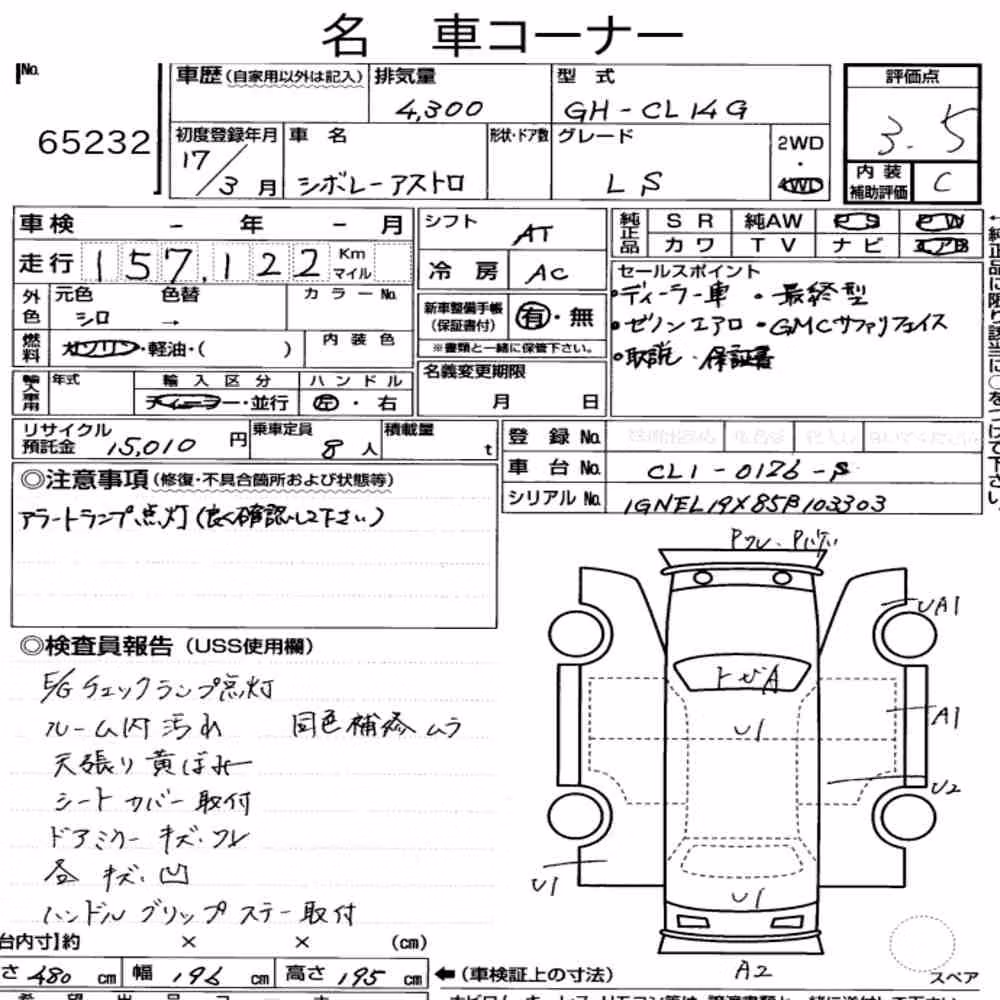 名 車コーナー
No. 65232
車歴(自家用以外は記入) 排気量 4,300 型 式 GH-CL14G 評価点 3.5
初度登録年月 17/3月 車 名 シボレーアストロ 形状・ドア数 グレード LS 2WD・4WD 内装補助評価 C
車検 - 年 - 月 シフト AT 純正品 SR 純AW PS PW
カワ TV ナビ エアB
走行 157,122 Km マイル 冷房 AC
セールスポイント
・ディーラー車 ・最終型
・ゼノンエアロ・GMCサファリフェイス
・取説・保証書
外色 元色 シロ 色替 → カラーNo.
新車整備手帳(保証書付) 有・無
※書類と一緒に保管下さい。
燃料 ガソリン・軽油・( ) 内装色
輸入車用 年式 輸入区分 ディーラー・並行 ハンドル 左・右
名義変更期限 月 日
リサイクル預託金 15,010円 乗車定員 8人 積載量 t
登録 No.
車台 No. CL1-0126-S
シリアル No. 1GNEL19X85B103303
◎注意事項(修復・不具合箇所および状態等)
アラートランプ点灯(良く確認して下さい)
◎検査員報告(USS使用欄)
E/Gチェックランプ点灯
ルーム内汚れ 同色補修ムラ
天張り黄ばみ
シートカバー取付
ドアミラーキズ・ワレ
各キズ・凹
ハンドルグリップステー取付
UA1
トビA
U1
A1
U2
U1
U1
A2
スペア
さ 480 cm 幅 196 cm 高さ 195 cm
台内寸】約 × × (cm)
(車検証上の寸法)